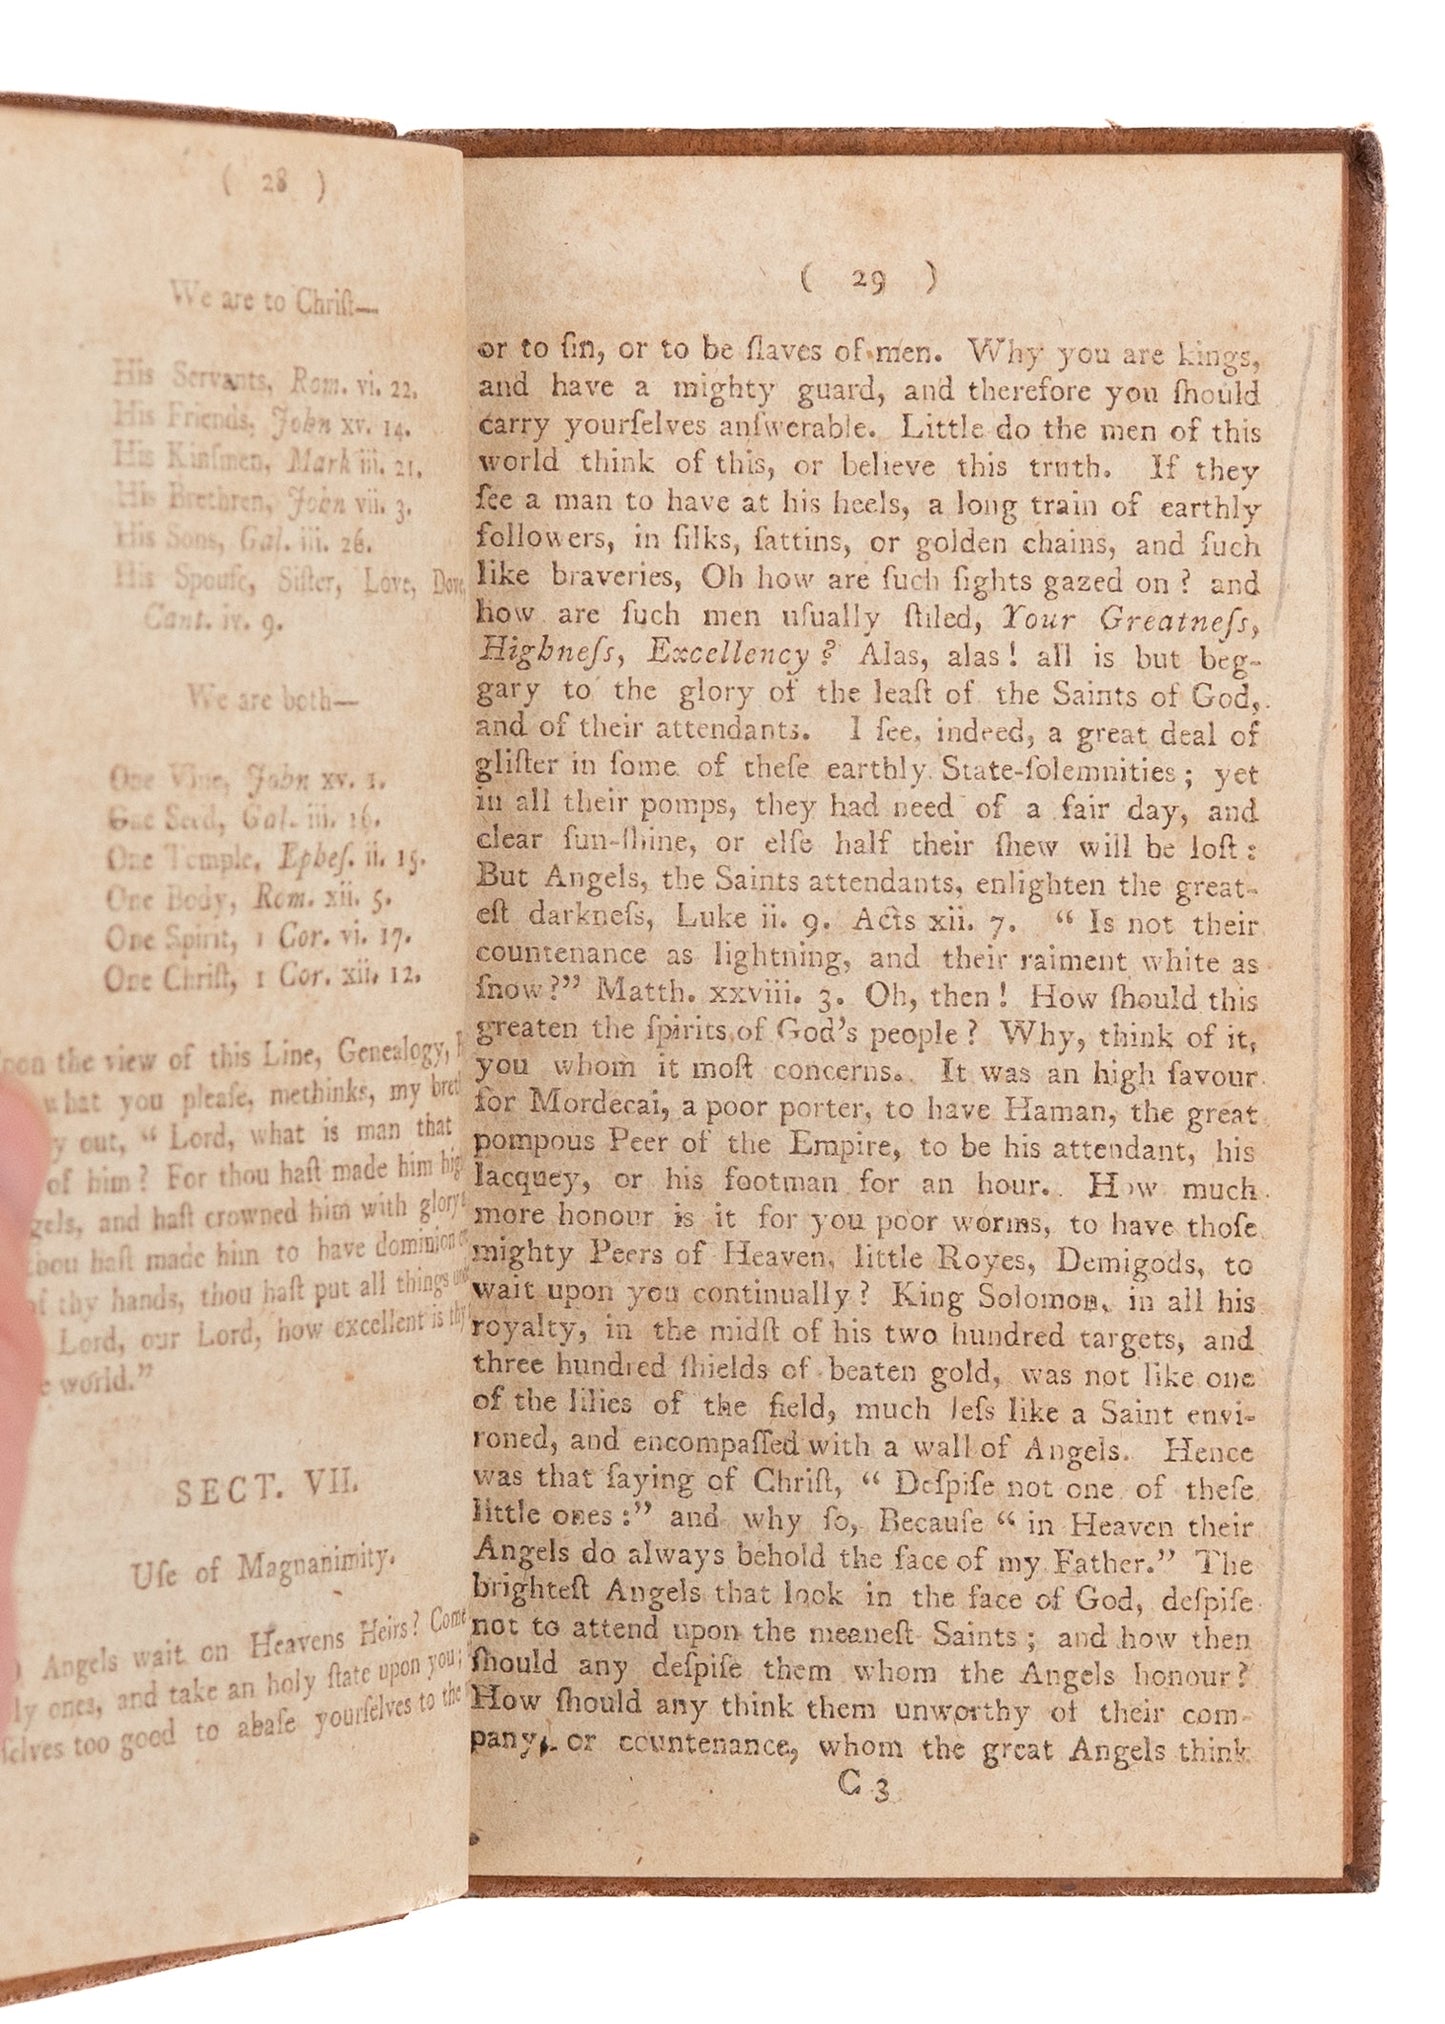 ( 28 )
We are to Chriſt—
His Servants, Rom. vi. 22.
His Friends, John xv. 14.
His Kinſmen, Mark iii. 21.
His Brethren, John vii. 3.
His Sons, Gal. iii. 26.
His Spouſe, Siſter, Love, Dove,
Cant. iv. 9.
We are both—
One Vine, John xv. 1.
One Seed, Gal. iii. 16.
One Temple, Epheſ. ii. 15.
One Body, Rom. xii. 5.
One Spirit, 1 Cor. vi. 17.
One Chriſt, 1 Cor. xii. 12.
the view of this Line, Genealogy,
what you pleaſe, methinks, my
out, “ Lord, what is man that
of him? For thou haſt made him
and haſt crowned him with glory
thou haſt made him to have dominion
of thy hands, thou haſt put all things
Lord, our Lord, how excellent is
world.”
SECT. VII.
Uſe of Magnanimity.
Angels wait on Heavens Heirs? Come
ones, and take an holy ſtate upon you;
too good to abaſe yourſelves to the
( 29 )
or to ſin, or to be ſlaves of men. Why you are kings,
and have a mighty guard, and therefore you ſhould
carry yourſelves anſwerable. Little do the men of this
world think of this, or believe this truth. If they
ſee a man to have at his heels, a long train of earthly
followers, in ſilks, ſattins, or golden chains, and ſuch
like braveries, Oh how are ſuch ſights gazed on? and
how are ſuch men uſually ſtiled, Your Greatneſs,
Highneſs, Excellency? Alas, alas! all is but beg-
gary to the glory of the leaſt of the Saints of God,
and of their attendants. I ſee, indeed, a great deal of
gliſter in ſome of theſe earthly State-ſolemnities; yet
in all their pomps, they had need of a fair day, and
clear ſun-ſhine, or elſe half their ſhew will be loſt:
But Angels, the Saints attendants, enlighten the great-
eſt darkneſs, Luke ii. 9. Acts xii. 7. “ Is not their
countenance as lightning, and their raiment white as
ſnow?” Matth. xxviii. 3. Oh, then! How ſhould this
greaten the ſpirits of God's people? Why, think of it,
you whom it moſt concerns. It was an high favour
for Mordecai, a poor porter, to have Haman, the great
pompous Peer of the Empire, to be his attendant, his
lacquey, or his footman for an hour. How much
more honour is it for you poor worms, to have thoſe
mighty Peers of Heaven, little Royes, Demigods, to
wait upon you continually? King Solomon, in all his
royalty, in the midſt of his two hundred targets, and
three hundred ſhields of beaten gold, was not like one
of the lilies of the field, much leſs like a Saint envi-
roned, and encompaſſed with a wall of Angels. Hence
was that ſaying of Chriſt, “ Deſpiſe not one of theſe
little ones:” and why ſo, Becauſe “ in Heaven their
Angels do always behold the face of my Father.” The
brighteſt Angels that look in the face of God, deſpiſe
not to attend upon the meaneſt Saints; and how then
ſhould any deſpiſe them whom the Angels honour?
How ſhould any think them unworthy of their com-
pany, or countenance, whom the great Angels think
C 3